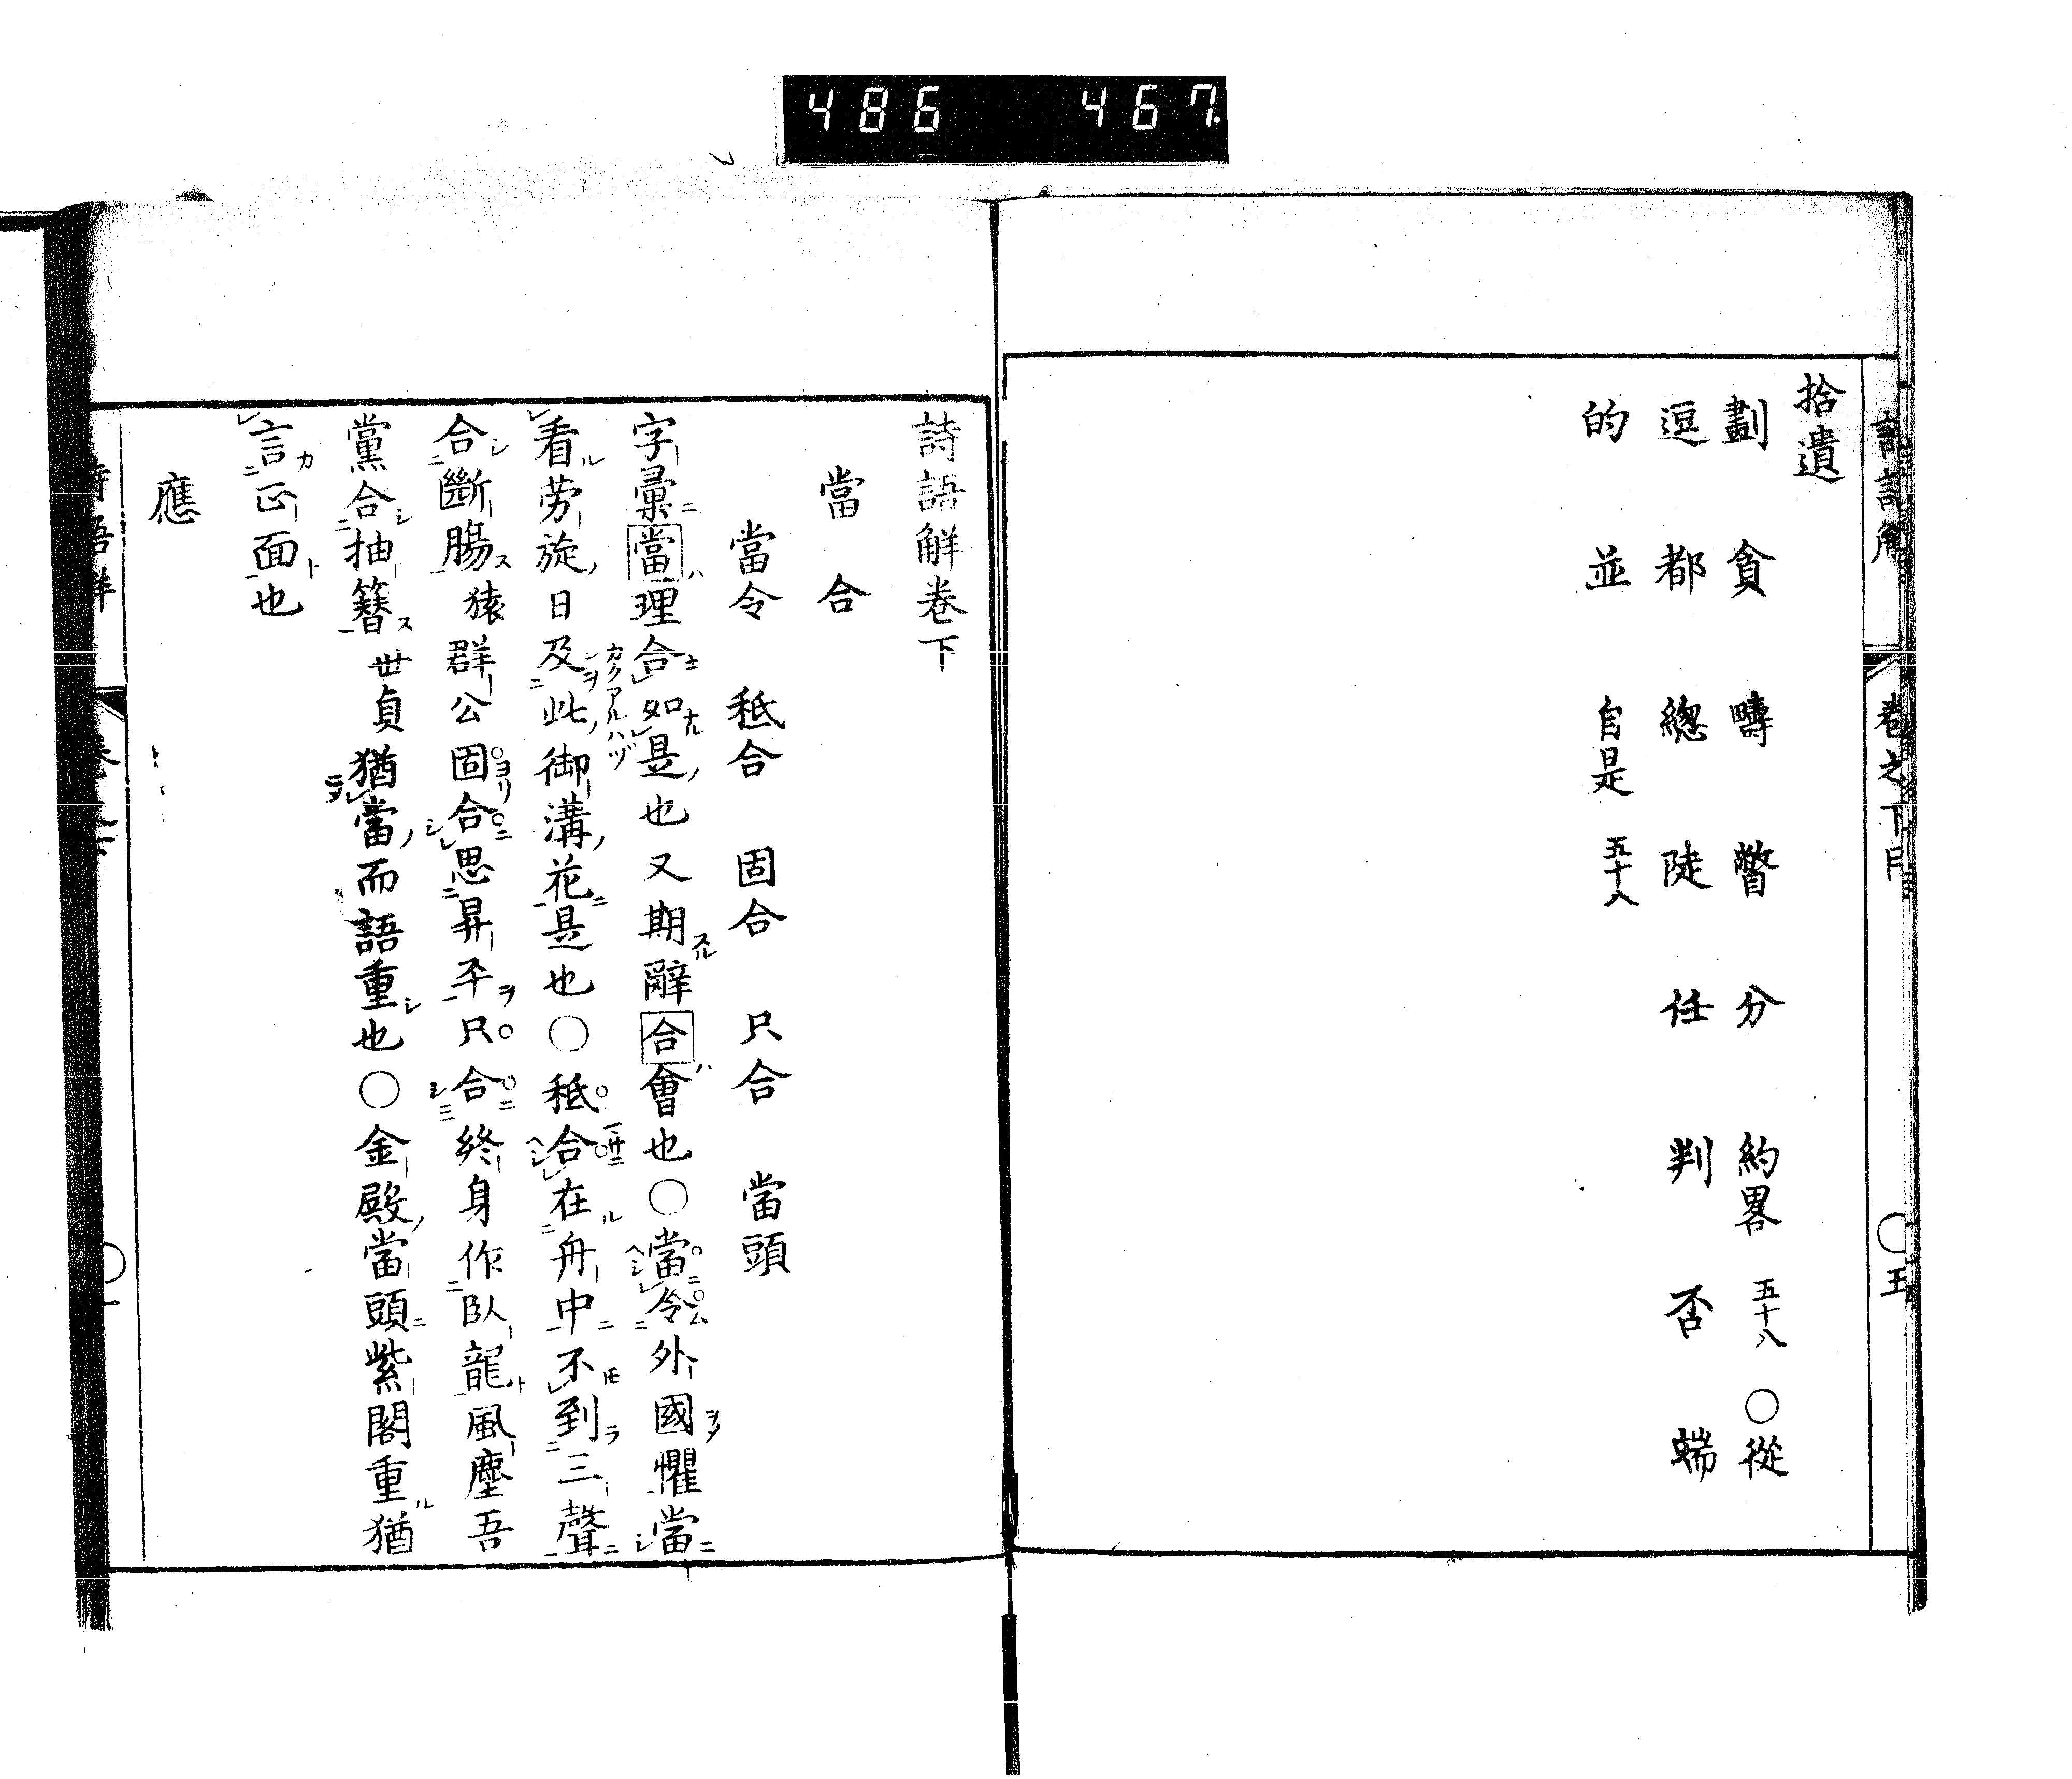 486 467
詩語解 卷之下目 ○五
拾遺
劃 貪 疇 瞥 分 約畧 五十八 ○從
逗 都 總 陡 任 判 否 端
的 並 自是 五十八
詩語解卷下
當 合
當令 秪合 固合 只合 當頭
字彙當理合如是也又期辭合會也○當令外國懼當
看劳旋日及此御溝花是也○秪合在舟中不到三聲
合斷腸猿群公固合思昇平只合終身作臥龍風塵吾
黨合抽簪世貞猶當而語重也○金殿當頭紫閣重猶
言正面也
應